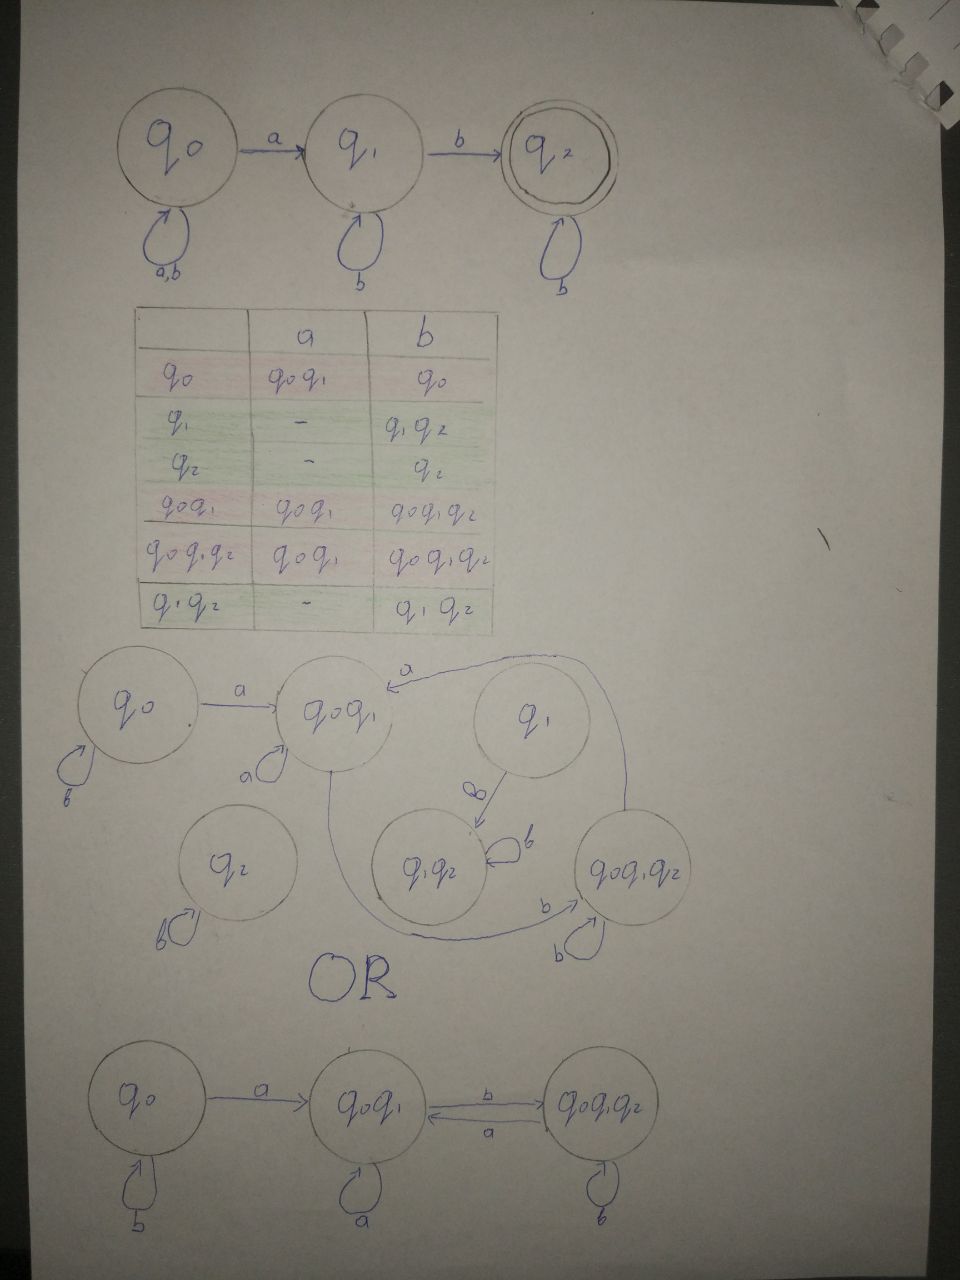 a b
q0 q1 q2
a,b b b
a b
q0 q0q1 q0
q1 - q1q2
q2 - q2
q0q1 q0q1 q0q1q2
q0q1q2 q0q1 q0q1q2
q1q2 - q1q2
a a
q0 q0q1 q1
b a b
q2 q1q2 b q0q1q2
b b b
OR
a b
q0 q0q1 q0q1q2
a
b a b